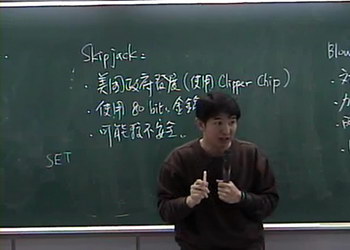 Skipjack:
· 美国政府發展 (使用 Clipper Chip)
· 使用 80 bits 金鑰
· 可能較不安全。
SET
Blow